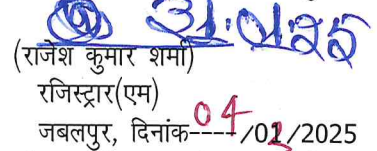 31.01.25
(राजेश कुमार शर्मा)
रजिस्ट्रार(एम)
जबलपुर, दिनांक----04/01/2025
2